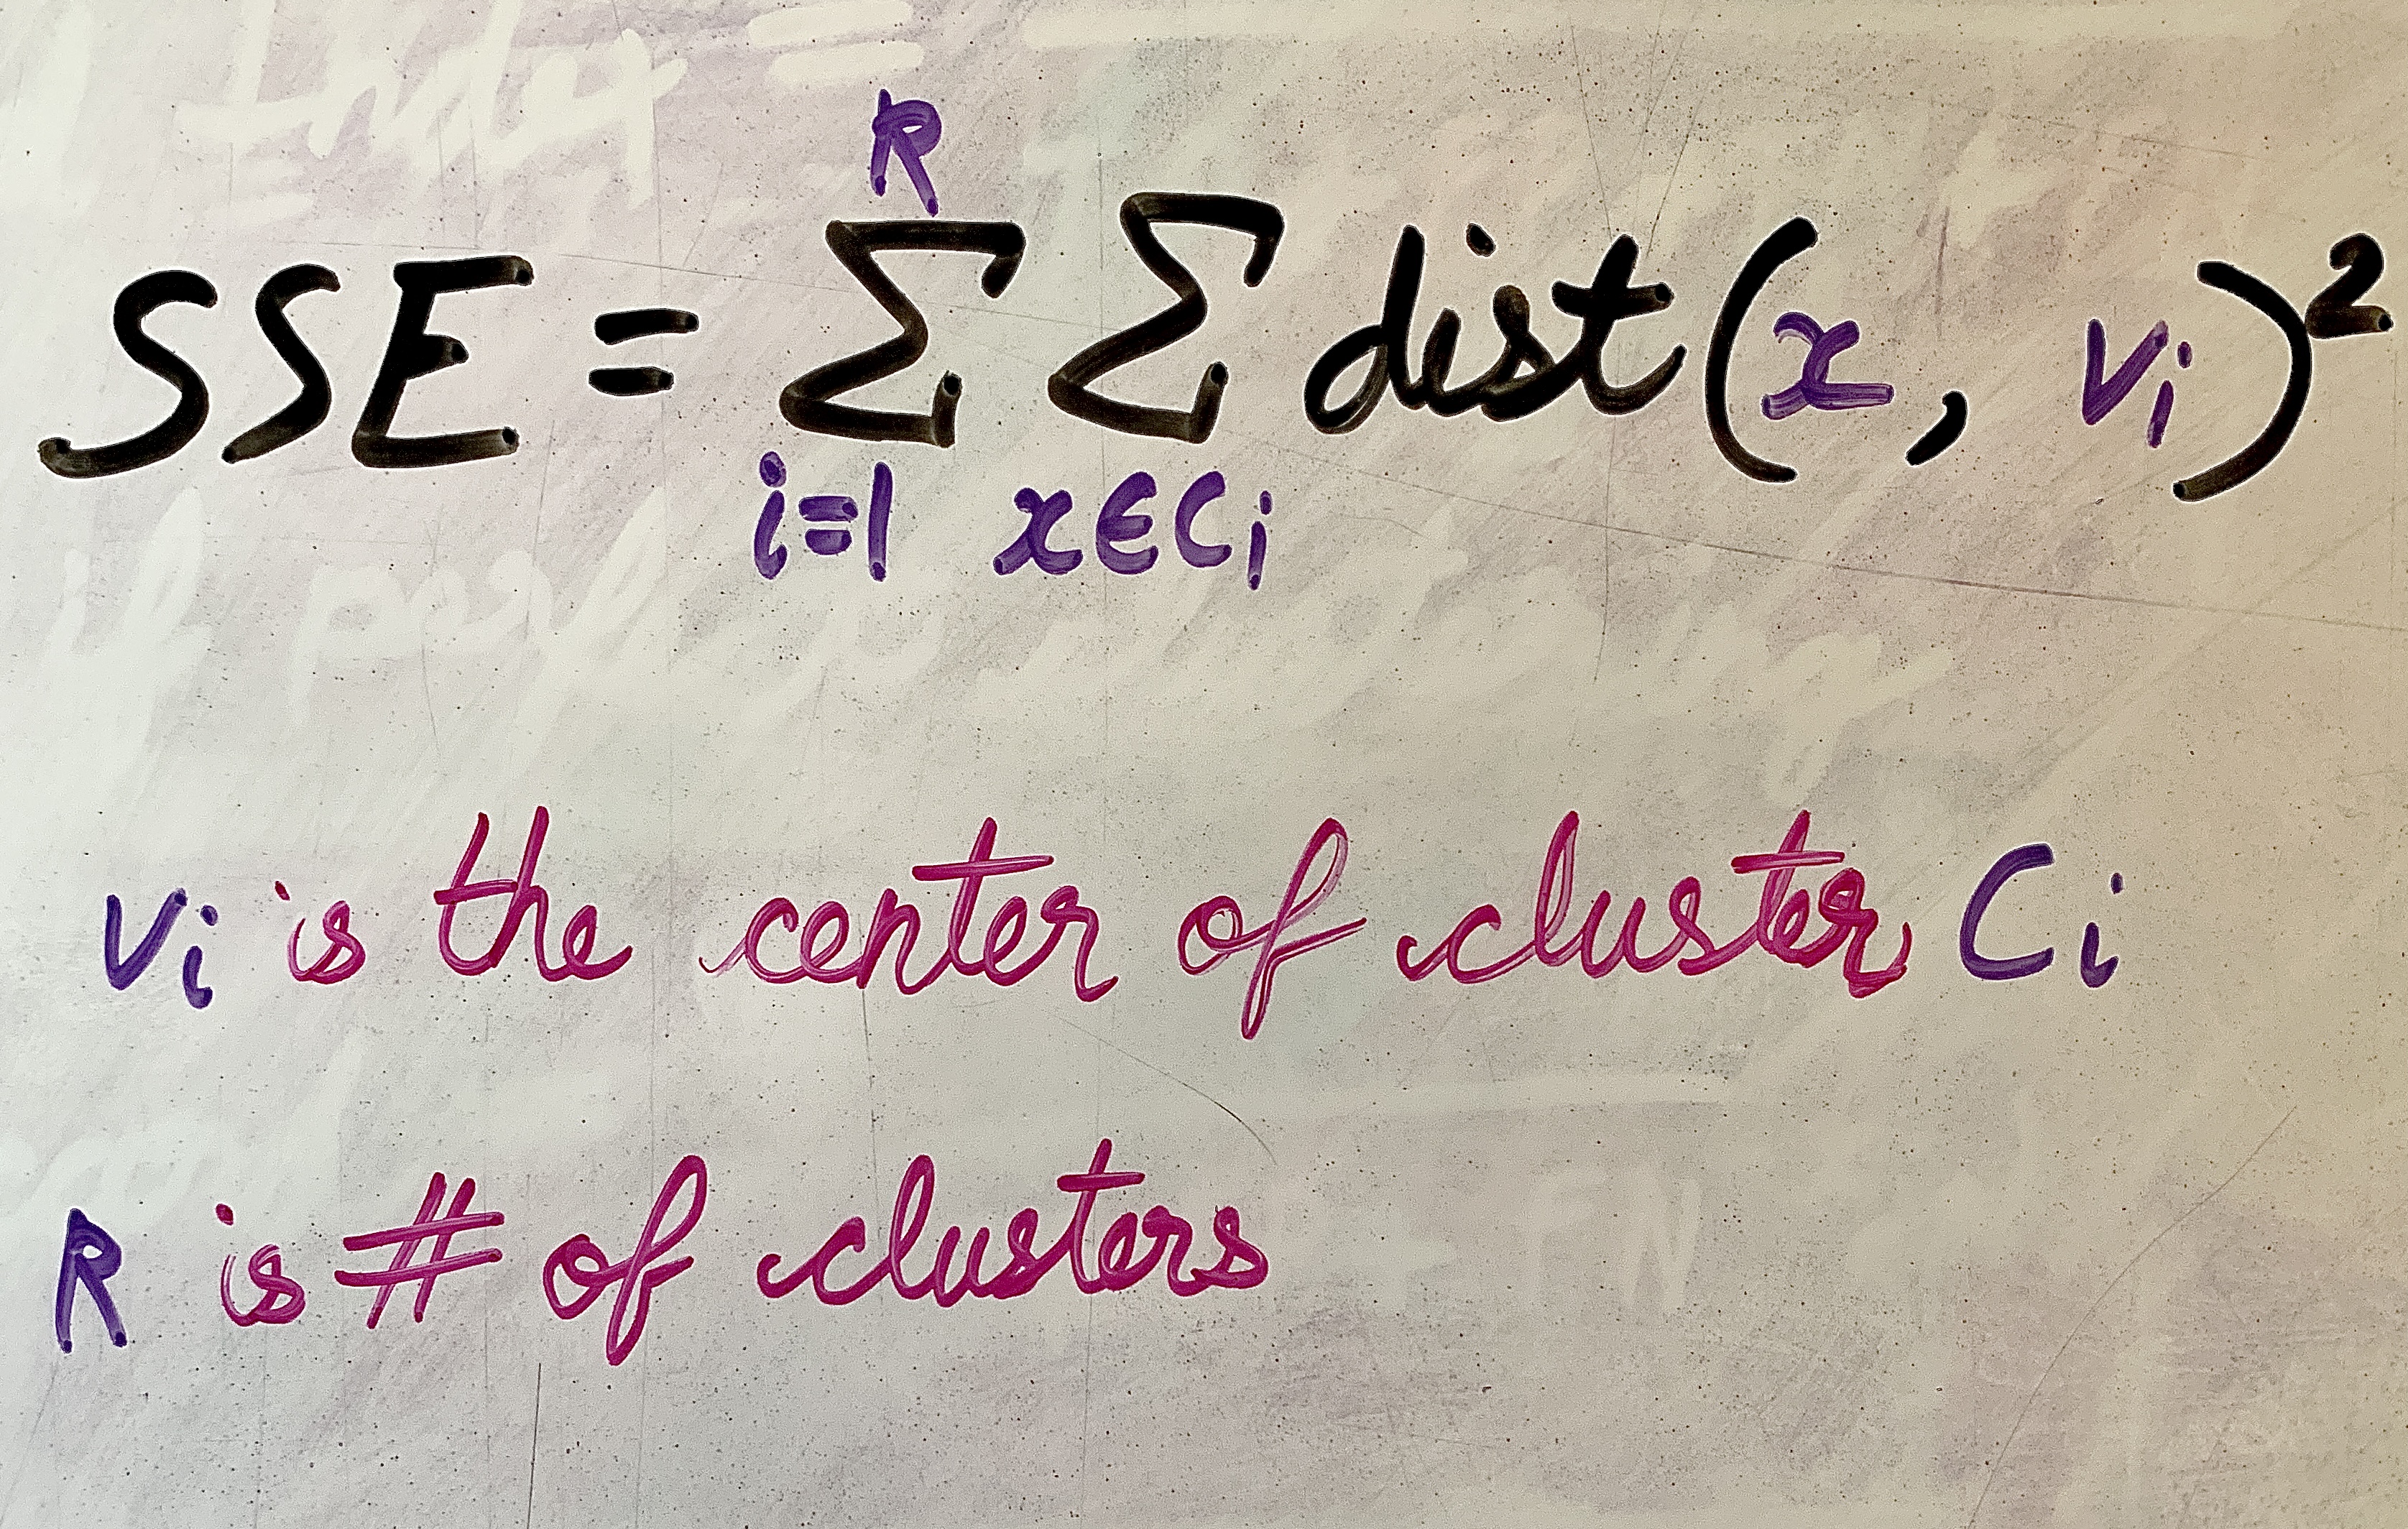 SSE = R Σ i=1 Σ x∈Ci dist(x, Vi)²
Vi is the center of cluster Ci
R is # of clusters